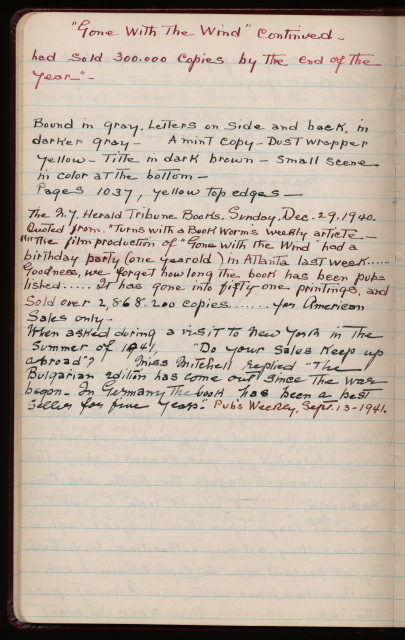 "Gone With The Wind" Continued -
had sold 300.000 copies by the end of the
year" -
Bound in gray, Letters on side and back, in
darker gray - A mint copy - Dust wrapper
yellow - Title in dark brown - Small scene
in color at the bottom -
Pages 1037, yellow top edges -
The N.Y. Herald Tribune Books, Sunday, Dec. 29. 1940.
Quoted from. "Turns with a Book Worm's weekly article -
"The film production of "Gone with the Wind" had a
birthday party (one year old) in Atlanta last week.....
Goodness, we forget how long the book has been pub-
lished..... It has gone into fifty one printings, and
Sold over 2,868.200 copies....... for American
Sales only.
When asked during a visit to New York in the
Summer of 1941, "Do your sales keep up
abroad"? Miss Mitchell replied "The
Bulgarian edition has come out since the war
began. In Germany the book has been a best
seller for five years." Pub's Weekly, Sept. 13 - 1941.